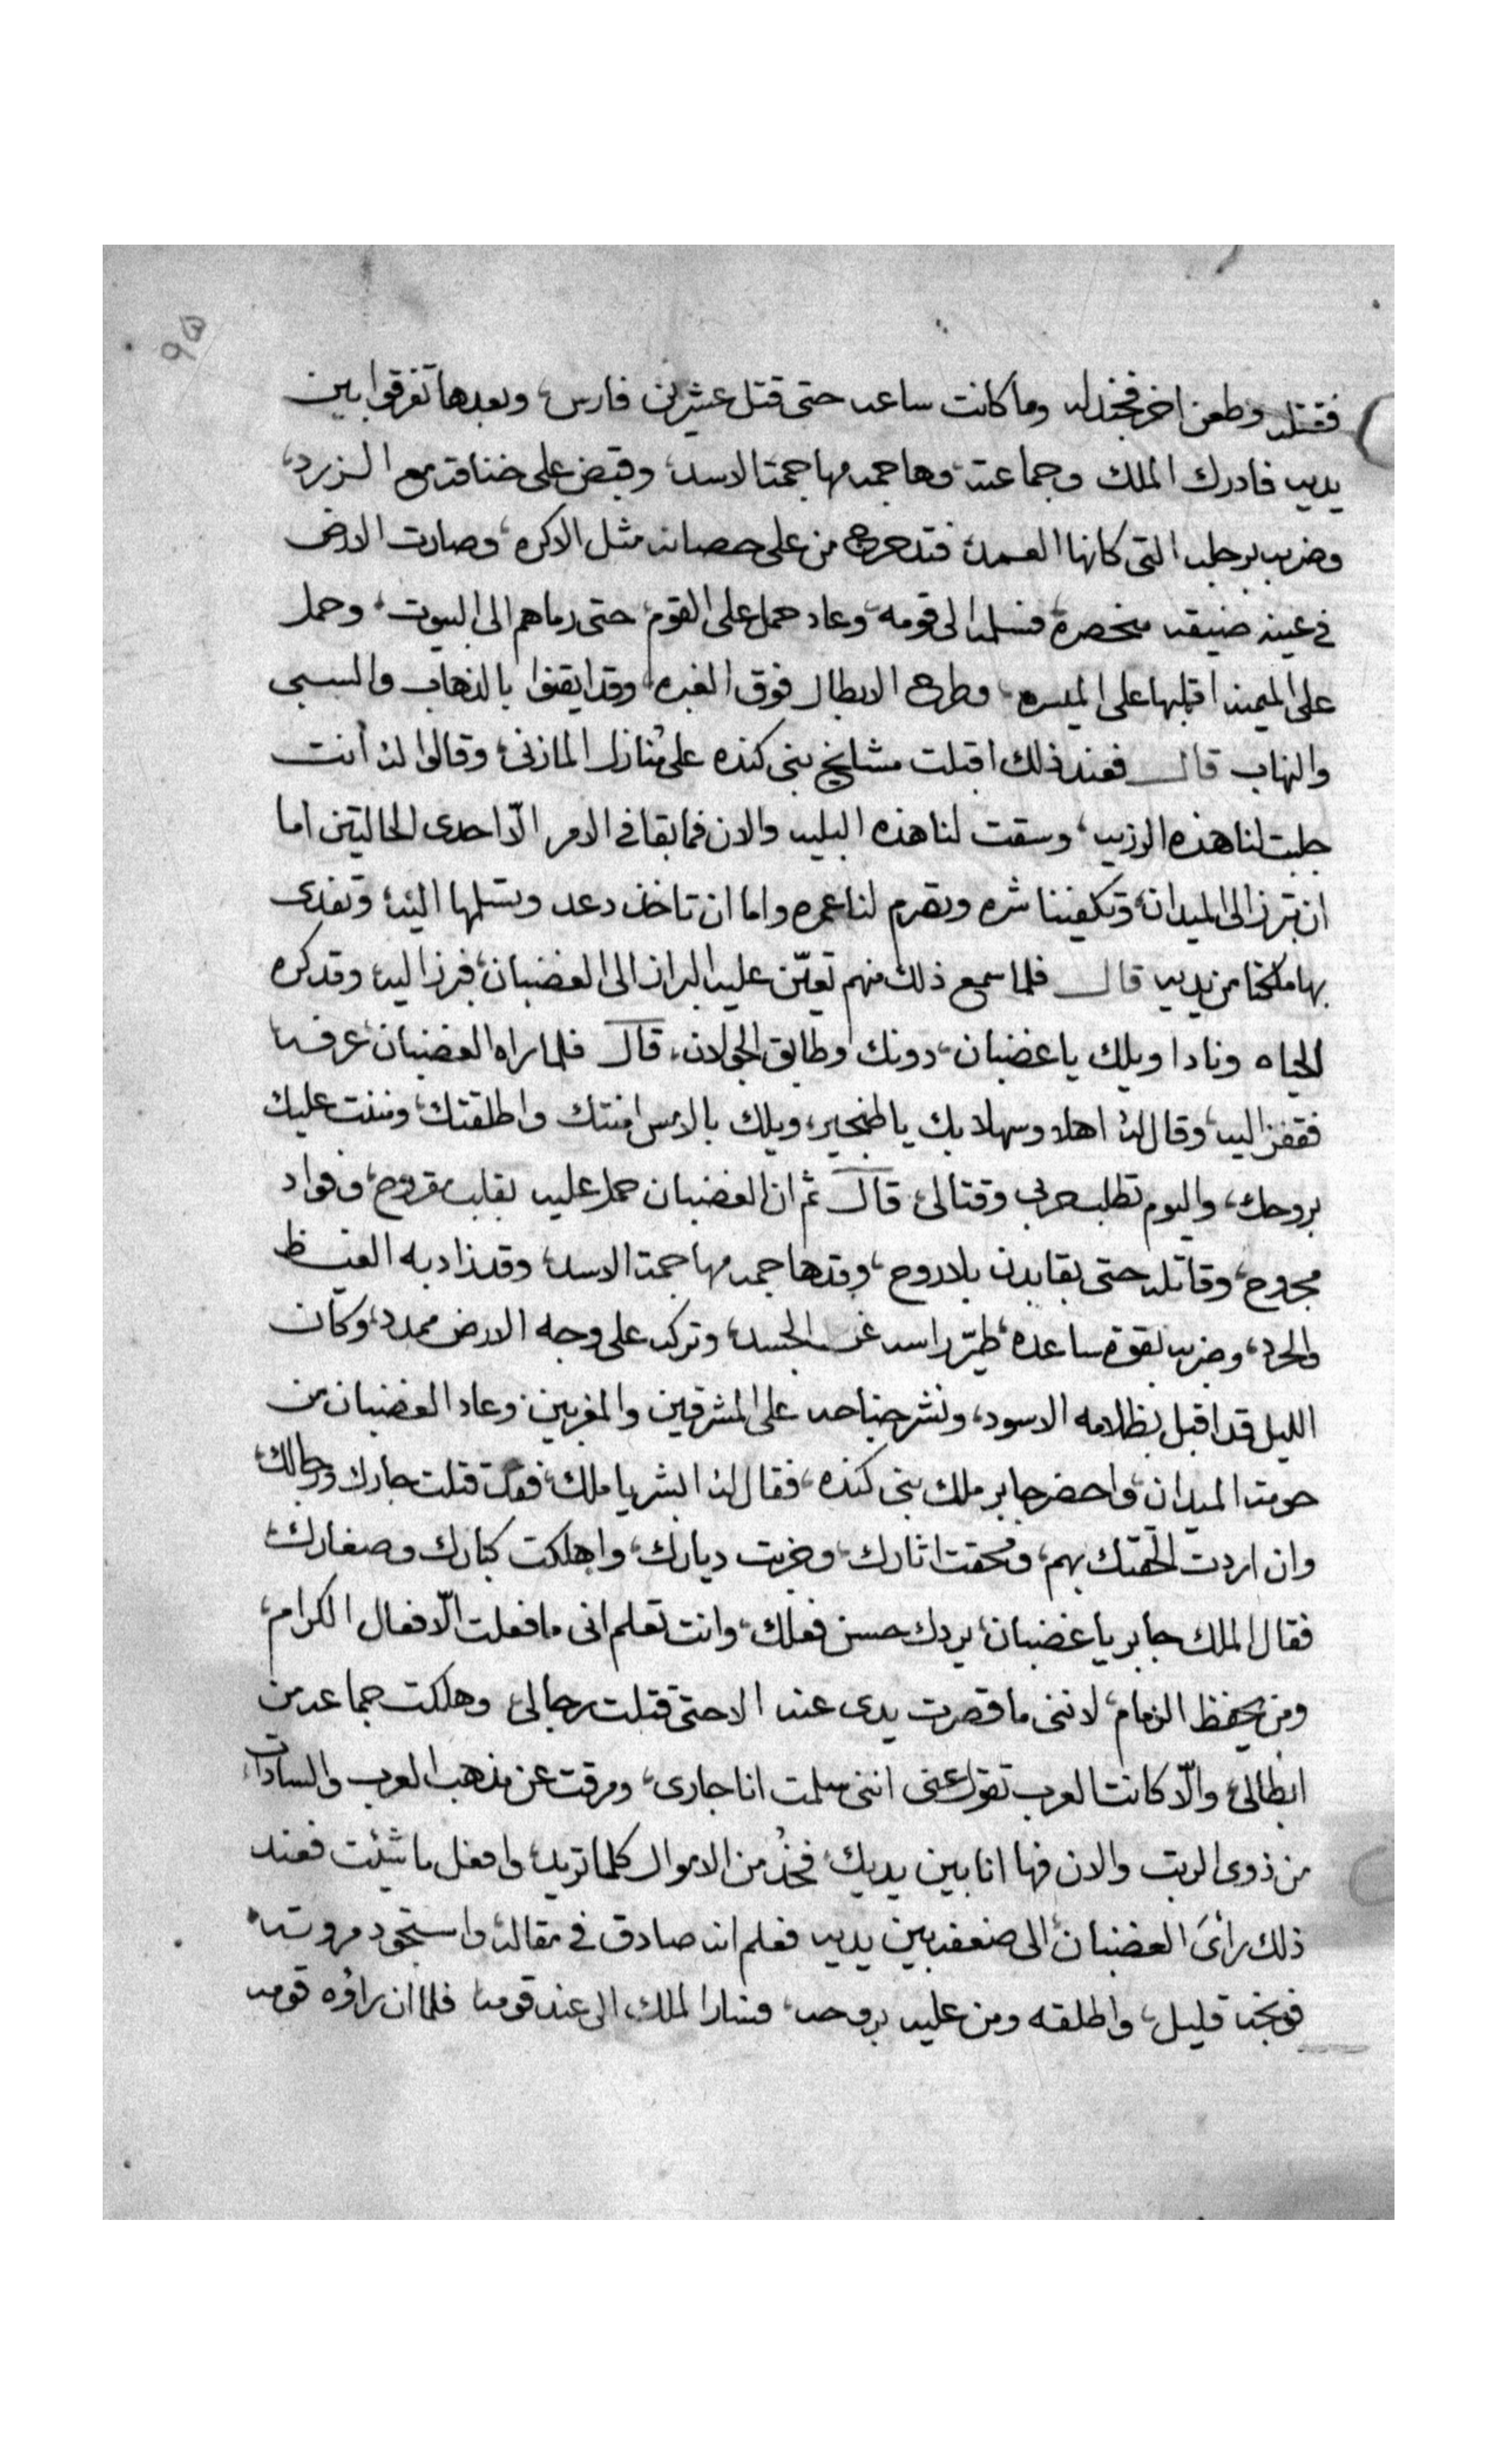 فقتله وطعن اخر فجندله وما كانت ساعه حتى قتل عشرين فارس، وبعدها تفرقوا بين
يديه فادرك الملك وجماعته، وهاجمه مهاجمة الاسد، وقبض على خناقه مع الزرد،
وضربه برجله التي كانها العمد، فتدحرج من على حصانه مثل الاكره، وصارت الارض
في عينه ضيقه منحصرة، فسلمه الى قومه، وعاد حمل على القوم، حتى رماهم الى البيوت، وحمل
على الميمنه اقبلها على الميسره، وطرح الابطال فوق الغبره، وقد ايقنوا بالذهاب والسبى
والنهاب قال فعند ذلك اقبلت مشايخ بنى كنده على مُنازل المازنى، وقالوا له انت
جلبت لنا هذه الرزيه، وسقت لنا هذه البليه والان فما بقا في الامر الّا احدى الحالتين اما
ان تبرز الى الميدان، وتكفينا شره وتصرم لنا عمره واما ان تاخذ دعد وتسلمها اليه، وتفدى
بها ملكنا من يديه قال فلما سمع ذلك منهم تعيّن عليه البراز الى الغضبان، فبرز اليه، وقد كره
الحياه ونادا ويلك يا غضبان، دونك وطابق الجولان، قال فلما راه الغضبان عرفه
فقفز اليه، وقال له اهلا وسهلا بك يا طنجير، ويلك بالامس امنتك واطلقتك، ومننت عليك
بروحك، واليوم تطلب حربى وقتالى، قال ثم ان الغضبان حمل عليه بقلب مقروح، وفواد
مجروح، وقاتله حتى بقا بدن بلا روح، وقد هاجمه مهاجمة الاسد، وقد زاد به الغيظ
والحرد، وضربه بقوة ساعده، طيّر راسه عن الجسد، وتركه على وجه الارض ممدد، وكان
الليل قد اقبل بظلامه الاسود، ونشر جناحه على المشرقين والمغربين وعاد الغضبان من
حومة الميدان، واحضر جابر ملك بنى كنده، فقال له ابشر يا ملك، فقد قتلت جارك ورجالك،
وان اردت الحقتك بهم، ومحقت اثارك، وخربت ديارك، واهلكت كبارك وصغارك،
فقال الملك جابر يا غضبان، يردك حسن فعلك، وانت تعلم انى ما فعلت الّا فعال الكرام،
ومن يحفظ الزمام، لاننى ما قصرت يدى عنه الا حتى قتلت رجالى، وهلكت جماعه من
ابطالى، والّا كانت العرب تقول عنى اننى سلمت انا جارى، ومرقت عن مذهب العرب والسادات
من ذوى الرتب والان فها انا بين يديك، فخُذ من الاموال كلما تريد، وافعل ما شئت فعند
ذلك رأى الغضبان، الى ضعفه بين يديه فعلم انه صادق في مقاله، واستجود مروته
فوبخه قليل، واطلقه ومن عليه بروحه، فسار الملك الى عند قومه فلما ان راؤه قومه